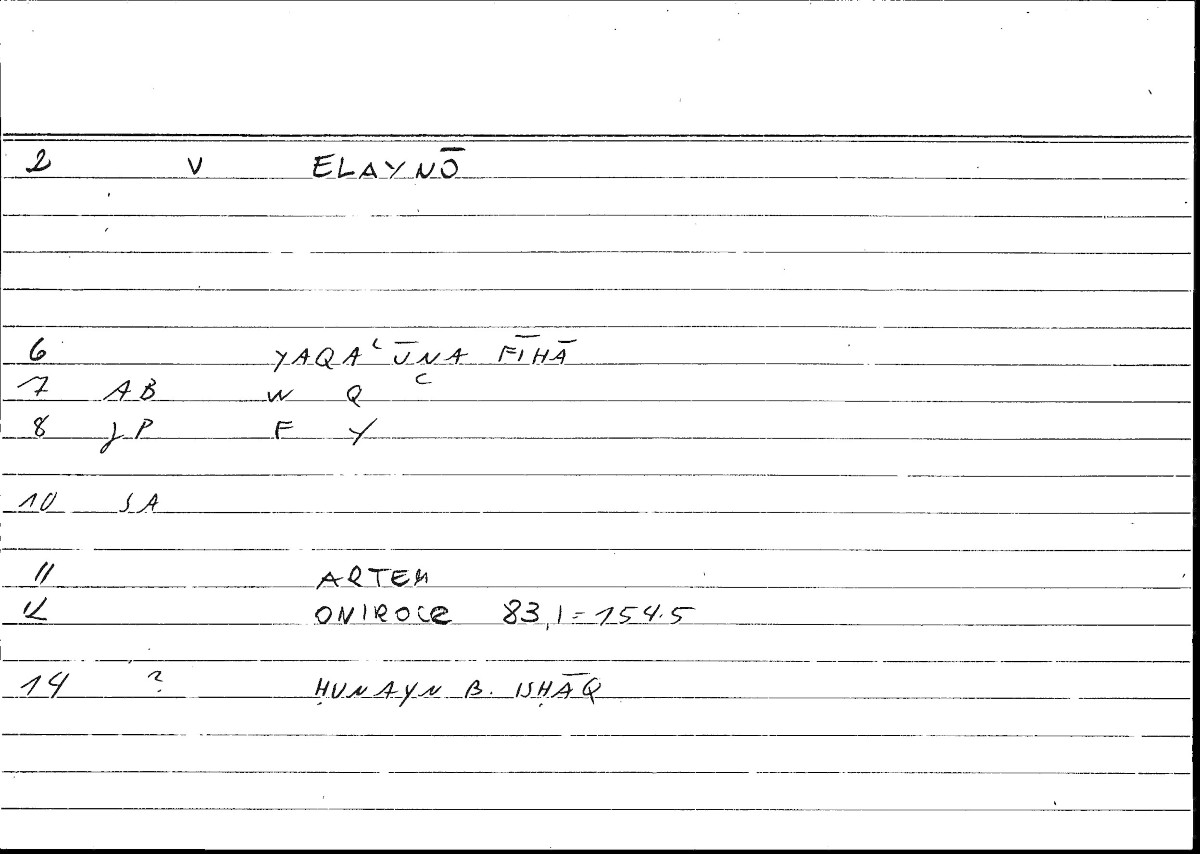 2 V ELAYNŌ
6 YAQAʿŪNA FĪHĀ
7 AB W Q ʿ
8 JP F Y
10 SA
11 ARTEM
12 ONIROCR 83,1=154.5
14 ? ḤUNAYN B. ISḤĀQ